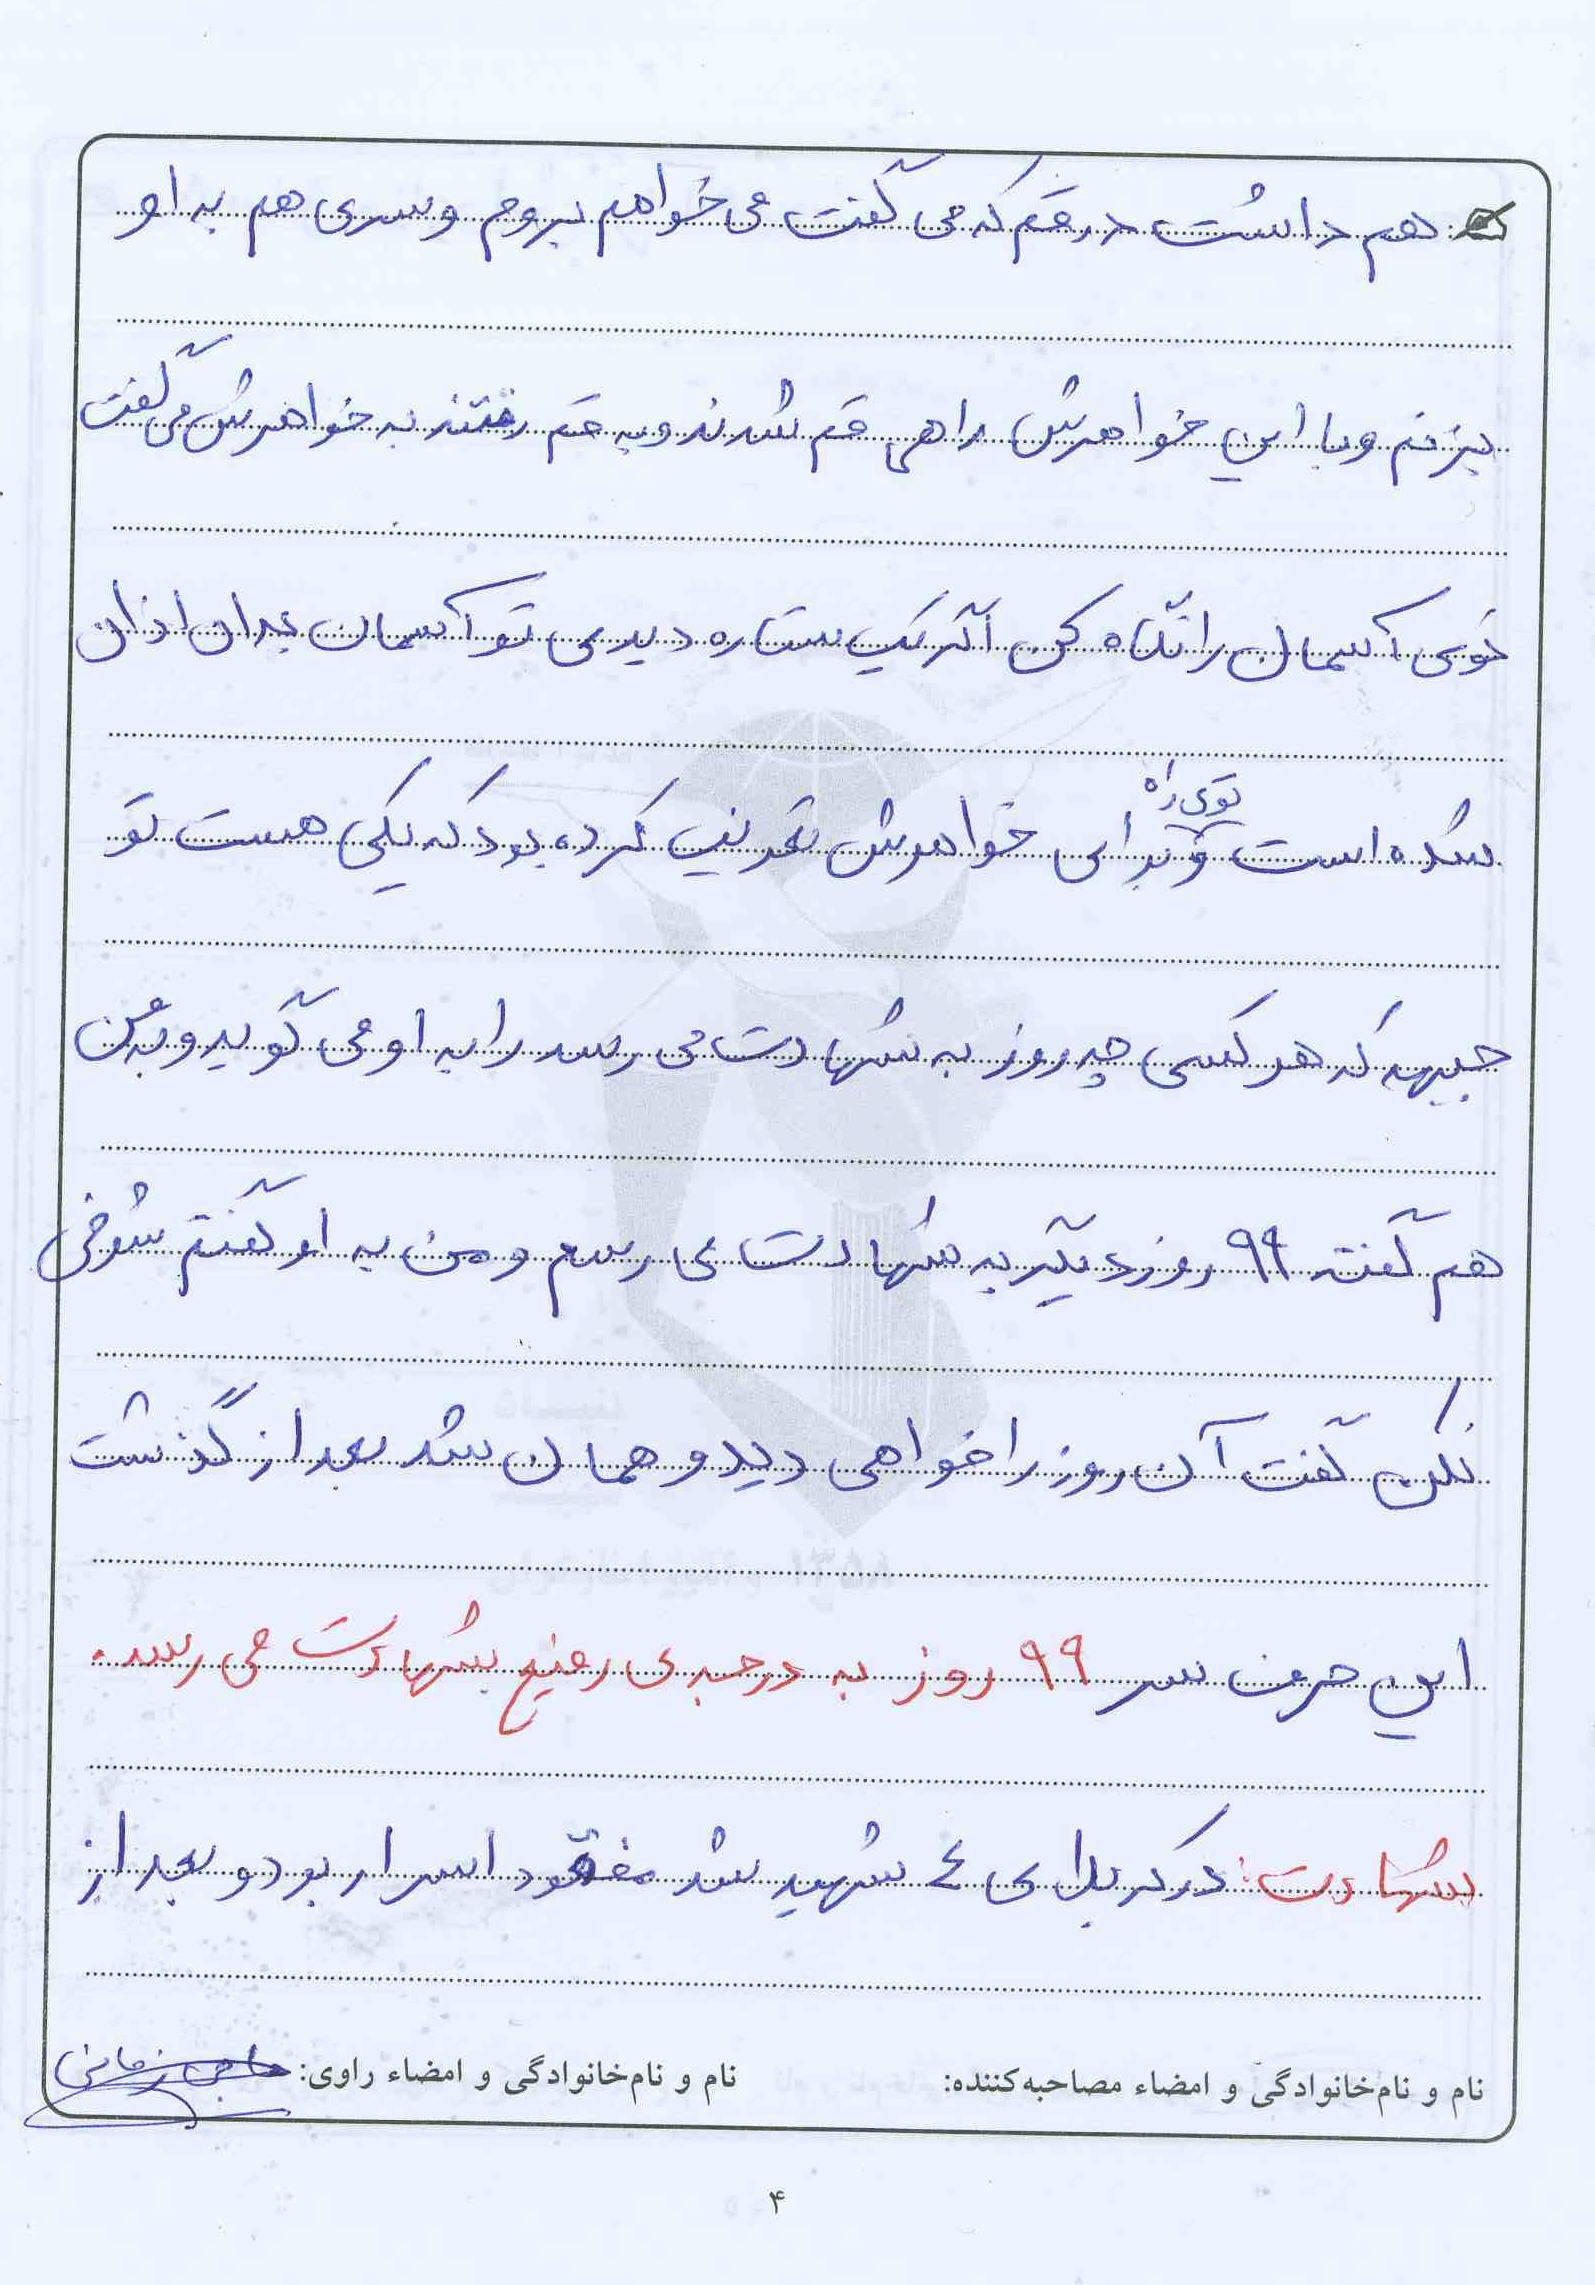 هم داشت در قم که می گفت می خواهم بروم و سری هم به او
بزنم و با این خواهرش راهی قم شدند و به قم رفتند به خواهرش می گفت
توی آسمان را نگاه کن اگر یک ستاره دیدی تو آسمان بدان اذان
توی راه
شده است و برای خواهرش تعریف کرده بود که یکی هست تو
جبهه که هر کسی چه روز به شهادت می رسد را به او می گوید و به من
هم گفته ۹۹ روز دیگر به شهادت می رسم و من به او گفتم شوخی
نکن گفت آن روز را خواهی دید و همان شد بعد از گذشت
این حرف سر ۹۹ روز به درجه ی رفیع شهادت می رسد.
شهادت: در کربلای ٤ شهید شد مفقود اسرار بود و بعد از
نام و نام‌خانوادگی و امضاء مصاحبه‌کننده: نام و نام‌خانوادگی و امضاء راوی:
۴